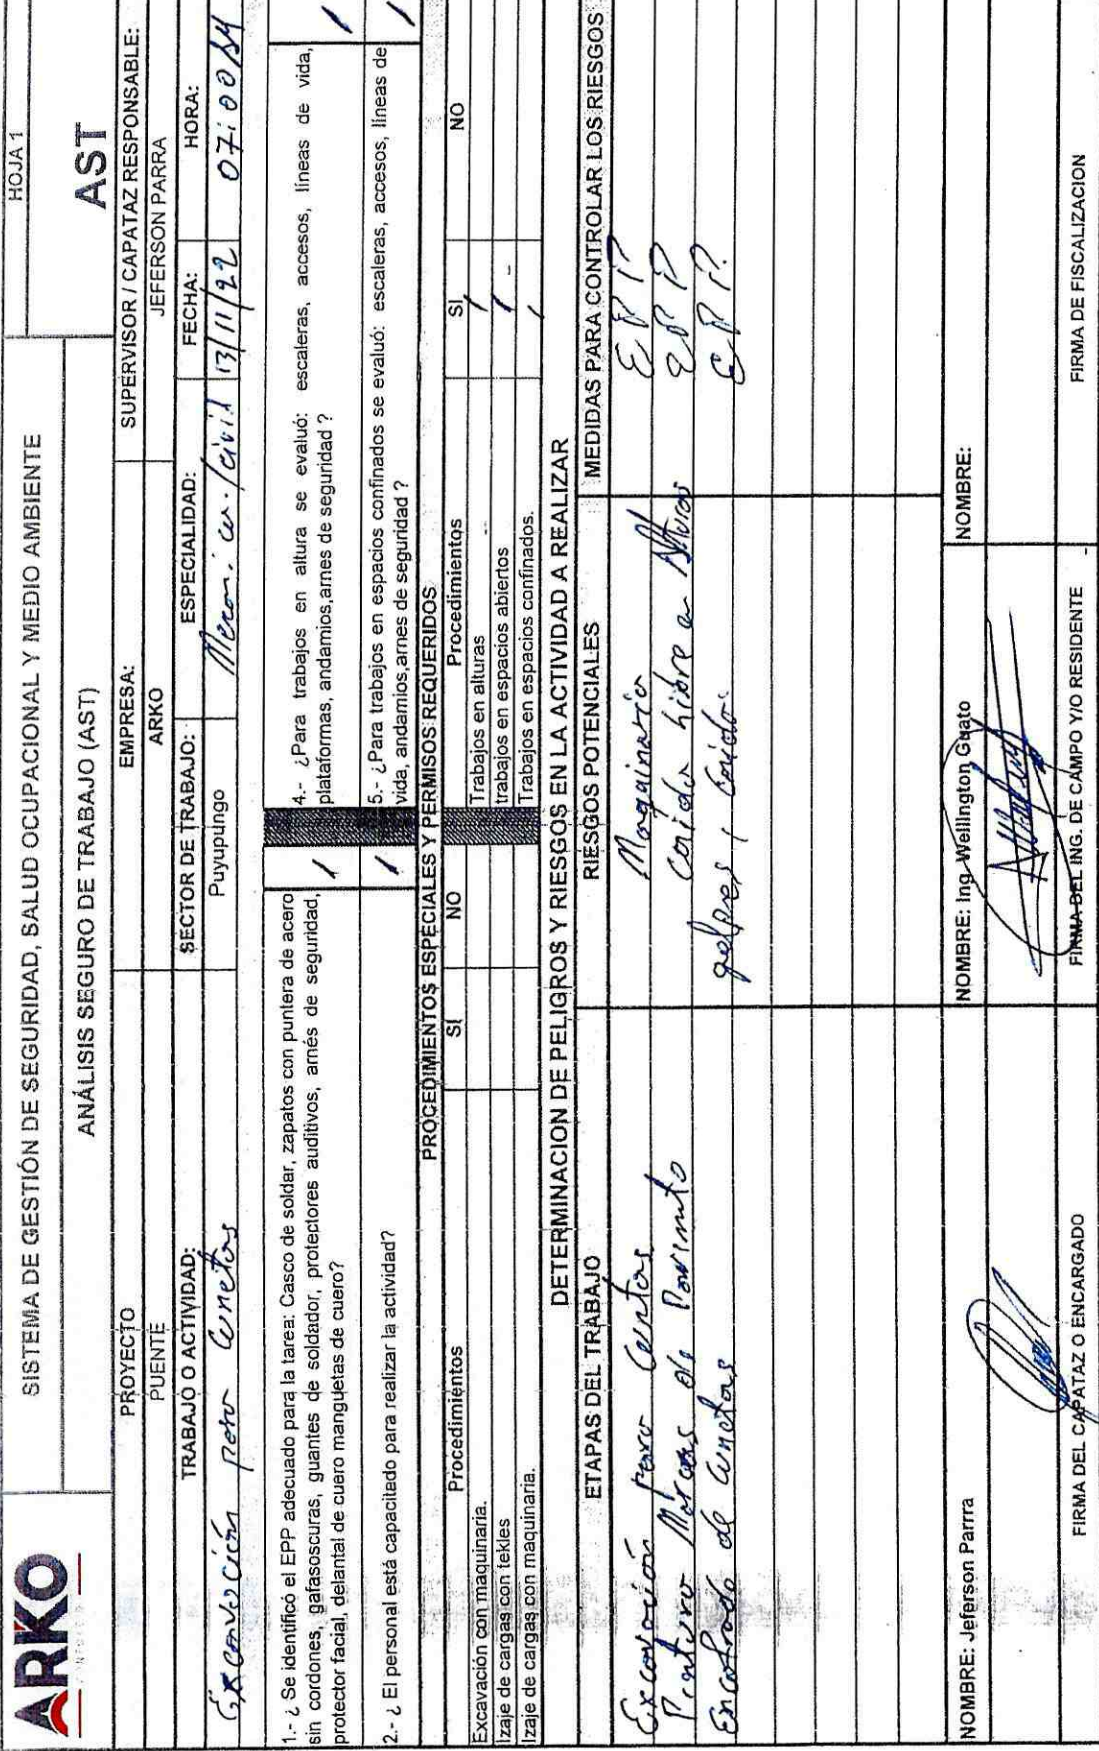 ARKO
SISTEMA DE GESTIÓN DE SEGURIDAD, SALUD OCUPACIONAL Y MEDIO AMBIENTE
HOJA 1
ANÁLISIS SEGURO DE TRABAJO (AST)
AST
PROYECTO
EMPRESA:
SUPERVISOR / CAPATAZ RESPONSABLE:
PUENTE
ARKO
JEFERSON PARRA
TRABAJO O ACTIVIDAD:
SECTOR DE TRABAJO:
ESPECIALIDAD:
FECHA:
HORA:
Excavación para Cunetas
Puyupungo
Mecanica/civil
13/11/22
07:00
1.- ¿ Se identificó el EPP adecuado para la tarea: Casco de soldar, zapatos con puntera de acero
sin cordones, gafasoscuras, guantes de soldador, protectores auditivos, arnés de seguridad,
protector facial, delantal de cuero manguetas de cuero?
/
4.- ¿Para trabajos en altura se evaluó: escaleras, accesos, líneas de vida,
plataformas, andamios,arnes de seguridad ?
/
2.- ¿ El personal está capacitado para realizar la actividad?
/
5.- ¿Para trabajos en espacios confinados se evaluó: escaleras, accesos, líneas de
vida, andamios,arnes de seguridad ?
/
PROCEDIMIENTOS ESPECIALES Y PERMISOS REQUERIDOS
Procedimientos
SÍ
NO
Procedimientos
SI
NO
Excavación con maquinaria.
Trabajos en alturas
/
Izaje de cargas con tekles
trabajos en espacios abiertos
/
Izaje de cargas con maquinaria.
Trabajos en espacios confinados.
/
DETERMINACION DE PELIGROS Y RIESGOS EN LA ACTIVIDAD A REALIZAR
ETAPAS DEL TRABAJO
RIESGOS POTENCIALES
MEDIDAS PARA CONTROLAR LOS RIESGOS
Excavación para Cuntas
Maquinaria
EPP
Pintura Marcas de Pavimento
Caida Libre en Alturas
EPP
Encofrado de Cunetas
golpes, Caida.
EPP.
NOMBRE: Jeferson Parrra
NOMBRE: Ing. Wellington Guato
NOMBRE:
FIRMA DEL CAPATAZ O ENCARGADO
FIRMA DEL ING. DE CAMPO Y/O RESIDENTE
FIRMA DE FISCALIZACION